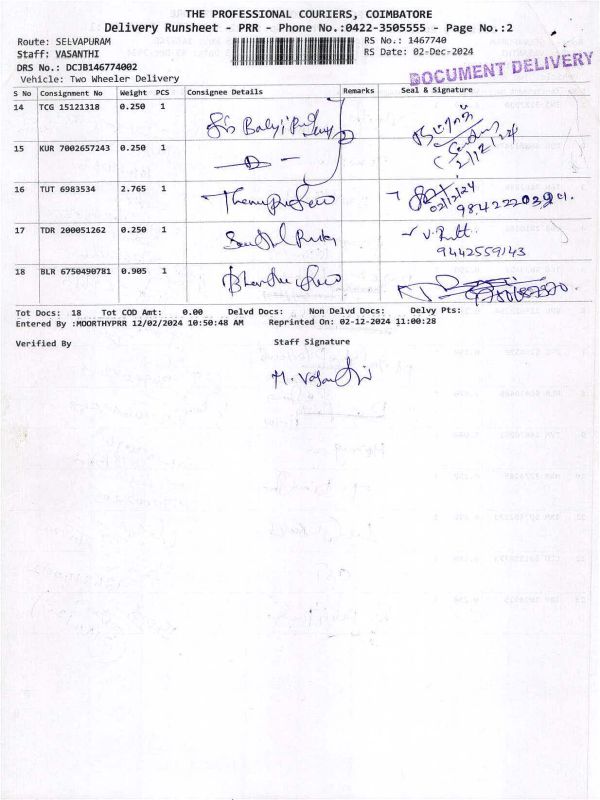 THE PROFESSIONAL COURIERS, COIMBATORE
Delivery Runsheet - PRR - Phone No.:0422-3505555 - Page No.:2
Route: SELVAPURAM RS No.: 1467740
Staff: VASANTHI RS Date: 02-Dec-2024
DRS No.: DCJB146774002
DOCUMENT DELIVERY
Vehicle: Two Wheeler Delivery
S No Consignment No Weight PCS Consignee Details Remarks Seal & Signature
14 TCG 15121318 0.250 1
2/12/24
15 KUR 7002657243 0.250 1
16 TUT 6983534 2.765 1
02/12/24
17 TDR 200051262 0.250 1
9442559143
18 BLR 6750490781 0.905 1
Tot Docs: 18 Tot COD Amt: 0.00 Delvd Docs: Non Delvd Docs: Delvy Pts:
Entered By :MOORTHYPRR 12/02/2024 10:50:48 AM Reprinted On: 02-12-2024 11:00:28
Verified By Staff Signature